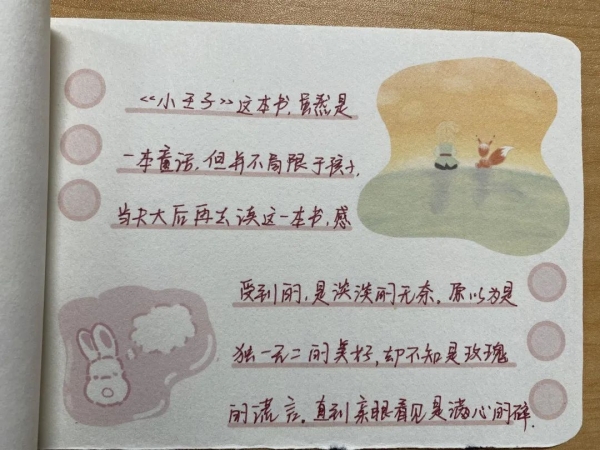 《小王子》这本书,虽然是
一本童话,但并不局限于孩子,
当长大后再去读这一本书,感
受到的,是淡淡的无奈。原以为是
独一无二的美好,却不知是玫瑰
的谎言。直到亲眼看见是满心的碎